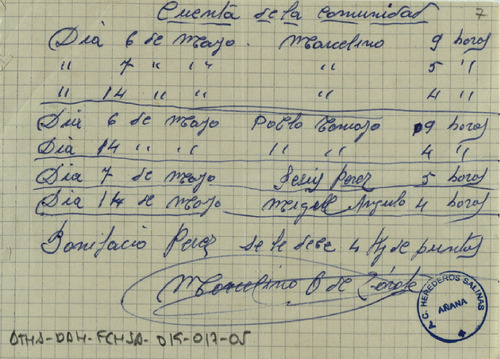 Cuenta de la comunidad
7
Dia 6 de Mayo. Marcelino 9 horas
" 7 " " " 5 "
" 14 " " " 4 "
Dia 6 de Mayo Pablo 9 horas
Dia 14 " " " " 4 "
Dia 7 de Mayo Jesus Perez 5 horas
Dia 14 de Mayo Miguel Angulo 4 horas
Bonifacio Perez se le debe 4 de puntas
Marcelino O de
P.C. HEREDEROS SALINAS
AÑANA
ATHA-DAH-FCHSA-015-017-05